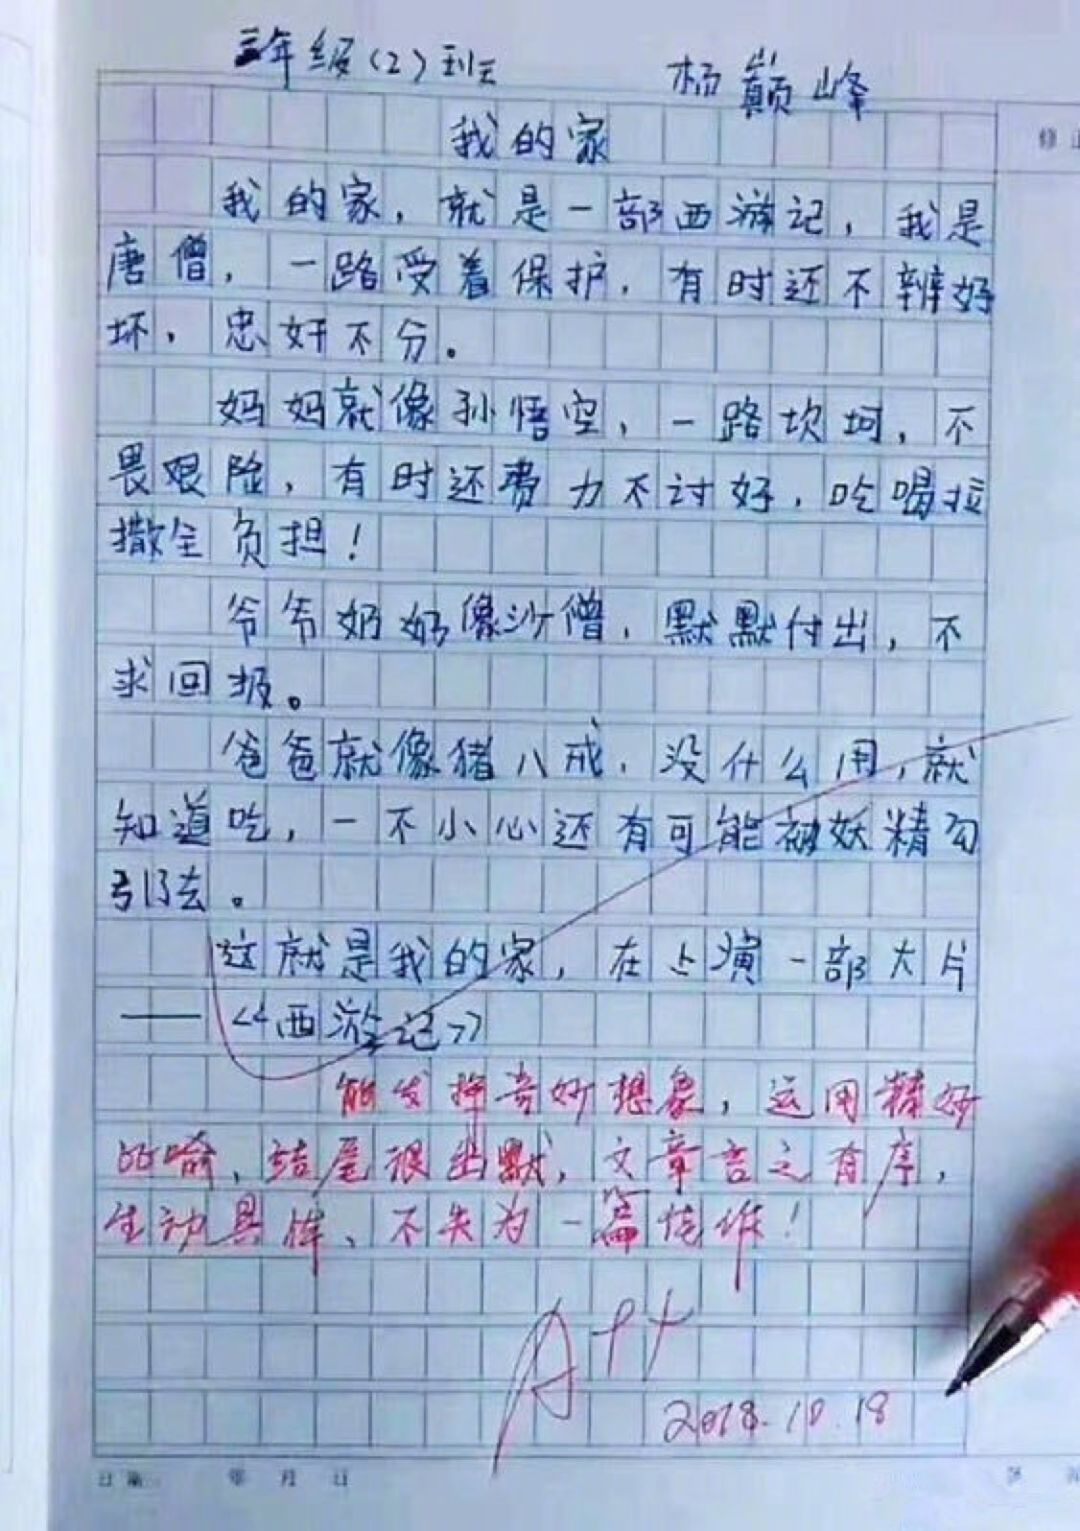 三年级(2)班 杨巅峰
我的家
我的家，就是一部西游记，我是
唐僧，一路受着保护，有时还不辨好
坏，忠奸不分。
妈妈就像孙悟空，一路坎坷，不
畏艰险，有时还费力不讨好，吃喝拉
撒全负担！
爷爷奶奶像沙僧，默默付出，不
求回报。
爸爸就像猪八戒，没什么用，就
知道吃，一不小心还有可能被妖精勾
引了去。
这就是我的家，在上演一部大片
——《西游记》
能发挥奇妙想象，运用精妙
比喻，结尾很幽默，文章言之有序，
生动具体，不失为一篇佳作！
A++
2018.10.18
年 月 日